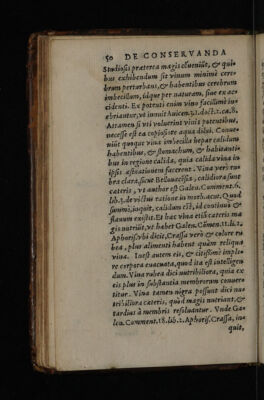 50 DE CONSERVANDA
Studiosis præterea magis cōueniūt, & qui-
bus exhibendum sit vinum minimè cere-
brum perturbans, & habentibus cerebrum
imbecillum, idque per naturam, siue ex ac-
cidenti. Ex potenti enim vino facillimè in-
ebriantur, vt innuit
Attamen si vsi voluerint vinis potentibus,
necesse est ea copiosiore aqua dilui. Conue-
niūt quoque vina imbecilla hepar calidum
habentibus, & stomachum, & habitanti-
bus in regione calida, quia calida vina in
ipsis æstuationem facerent. Vina verò ru-
bea clara, sicut Belluacensia, calidiora sunt
cæteris, vt author est Galen. Comment. 6.
lib. 3. de victus ratione in morb. acut. Quod
summè, inquit, calidum est, id continuò &
flauum existit. Et hæc vina etiā cæteris ma
gis nutriūt, vt habet Galen. Cōment. 11. lib. 2.
Aphoris. vbi dicit, Crassa verò & colore ru
bea, plus alimenti habent quàm reliqua
vina. Inest autem eis, & citissimè imple-
re corpora euacuata, quod ita est intelligen
dum. Vina rubra dici nutribiliora, quia ex
eis plus in substantia membrorum conuer-
titur. Vina tamen nigra possunt dici nu-
tribiliora cæteris, quòd magis nutriant, &
tardius à membris resoluantur. Vnde Ga-
len. Comment. 18. lib. 2. Aphoris. Crassa, in-
quit,